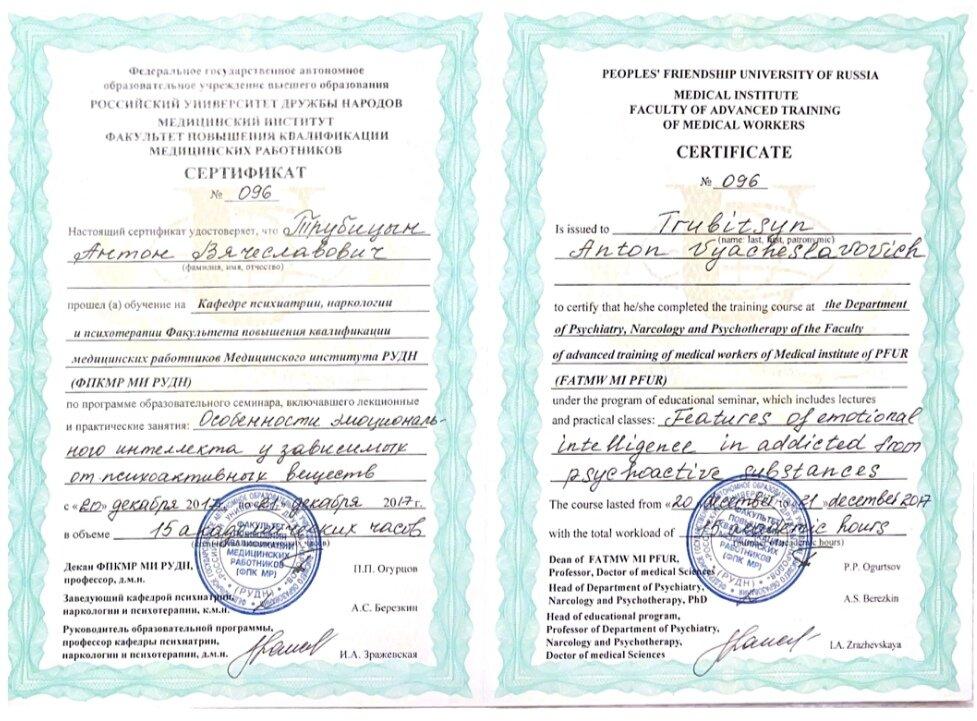 Федеральное государственное автономное
образовательное учреждение высшего образования
РОССИЙСКИЙ УНИВЕРСИТЕТ ДРУЖБЫ НАРОДОВ
МЕДИЦИНСКИЙ ИНСТИТУТ
ФАКУЛЬТЕТ ПОВЫШЕНИЯ КВАЛИФИКАЦИИ
МЕДИЦИНСКИХ РАБОТНИКОВ
СЕРТИФИКАТ
№ 096
Настоящий сертификат удостоверяет, что Трубицын
Антон Вячеславович
(фамилия, имя, отчество)
прошел (а) обучение на Кафедре психиатрии, наркологии
и психотерапии Факультета повышения квалификации
медицинских работников Медицинского института РУДН
(ФПКМР МИ РУДН)
по программе образовательного семинара, включавшего лекционные
и практические занятия: Особенности эмоциональ-
ного интеллекта у зависимых
от психоактивных веществ
с «20» декабря 2017 по «21» декабря 2017 г.
в объеме 15 академических часов
Декан ФПКМР МИ РУДН,
профессор, д.м.н.
П.П. Огурцов
Заведующий кафедрой психиатрии,
наркологии и психотерапии, к.м.н.
А.С. Березкин
Руководитель образовательной программы,
профессор кафедры психиатрии,
наркологии и психотерапии, д.м.н.
И.А. Зражевская
ФАКУЛЬТЕТ
ПОВЫШЕНИЯ
КВАЛИФИКАЦИИ
МЕДИЦИНСКИХ
РАБОТНИКОВ
(ФПК МР)
(РУДН)
PEOPLES' FRIENDSHIP UNIVERSITY OF RUSSIA
MEDICAL INSTITUTE
FACULTY OF ADVANCED TRAINING
OF MEDICAL WORKERS
CERTIFICATE
№ 096
Is issued to Trubitsyn
(name: last, first, patronymic)
Anton Vyacheslavovich
to certify that he/she completed the training course at the Department
of Psychiatry, Narcology and Psychotherapy of the Faculty
of advanced training of medical workers of Medical institute of PFUR
(FATMW MI PFUR)
under the program of educational seminar, which includes lectures
and practical classes: Features of emotional
intelligence in addicted from
psychoactive substances
The course lasted from «20 december to 21 » december 2017
with the total workload of 15 academic hours
(academic hours)
Dean of FATMW MI PFUR,
Professor, Doctor of medical Sciences
P.P. Ogurtsov
Head of Department of Psychiatry,
Narcology and Psychotherapy, PhD
A.S. Berezkin
Head of educational program,
Professor of Department of Psychiatry,
Narcology and Psychotherapy,
Doctor of medical Sciences
I.A. Zrazhevskaya
ФАКУЛЬТЕТ
ПОВЫШЕНИЯ
КВАЛИФИКАЦИИ
МЕДИЦИНСКИХ
РАБОТНИКОВ
(ФПК МР)
(РУДН)